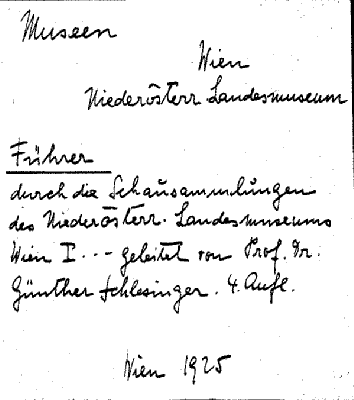 Museen
Wien
Niederösterr. Landesmuseum
Führer
durch die Schausammlungen
des Niederösterr. Landesmuseums
Wien I. .. geleitet von Prof. Dr.
Günther Schlesinger. 4. Aufl.
Wien 1925